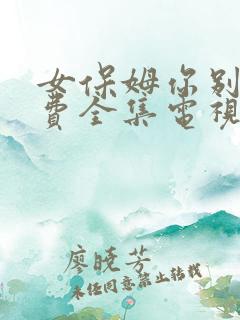 女保姆你别
费全集电视
廖晓芳
未经同意禁止转载